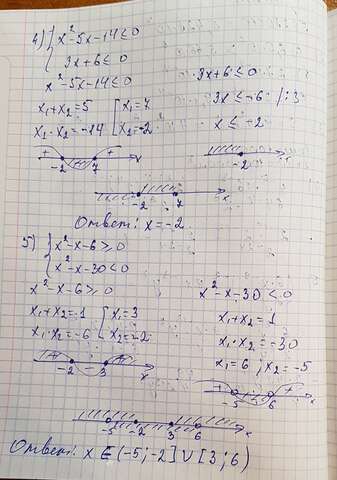 4) { x²-5x-14≤0
3x+6≤0
x²-5x-14≤0
3x+6≤0
x₁+x₂=5 [ x₁=7
3x≤-6 /:3
x₁·x₂=-14 x₂=-2
x≤-2
+ - + -2 7 x
-2 x
-2 7 x
Ответ: x=-2.
5) { x²-x-6≥0
x²-x-30<0
x²-x-6≥0
x²-x-30<0
x₁+x₂=1 { x₁=3
x₁+x₂=1
x₁·x₂=-6 x₂=-2
x₁·x₂=-30
x₁=6, x₂=-5
+ -2 - 3 + x
+ -5 - 6 + x
-5 -2 3 6 x
Ответ: x∈(-5;-2]∪[3;6)